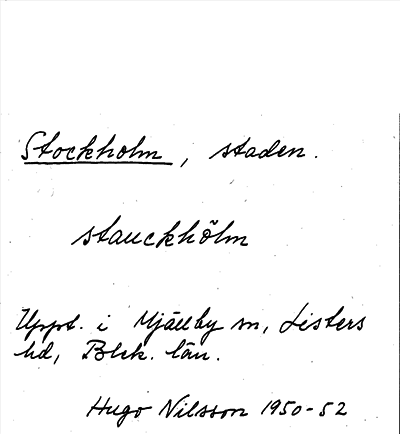 Stockholm, staden.
stauckhölm
Uppt. i Mjällby sn, Listers
hd, Blek. län.
Hugo Nilsson 1950-52